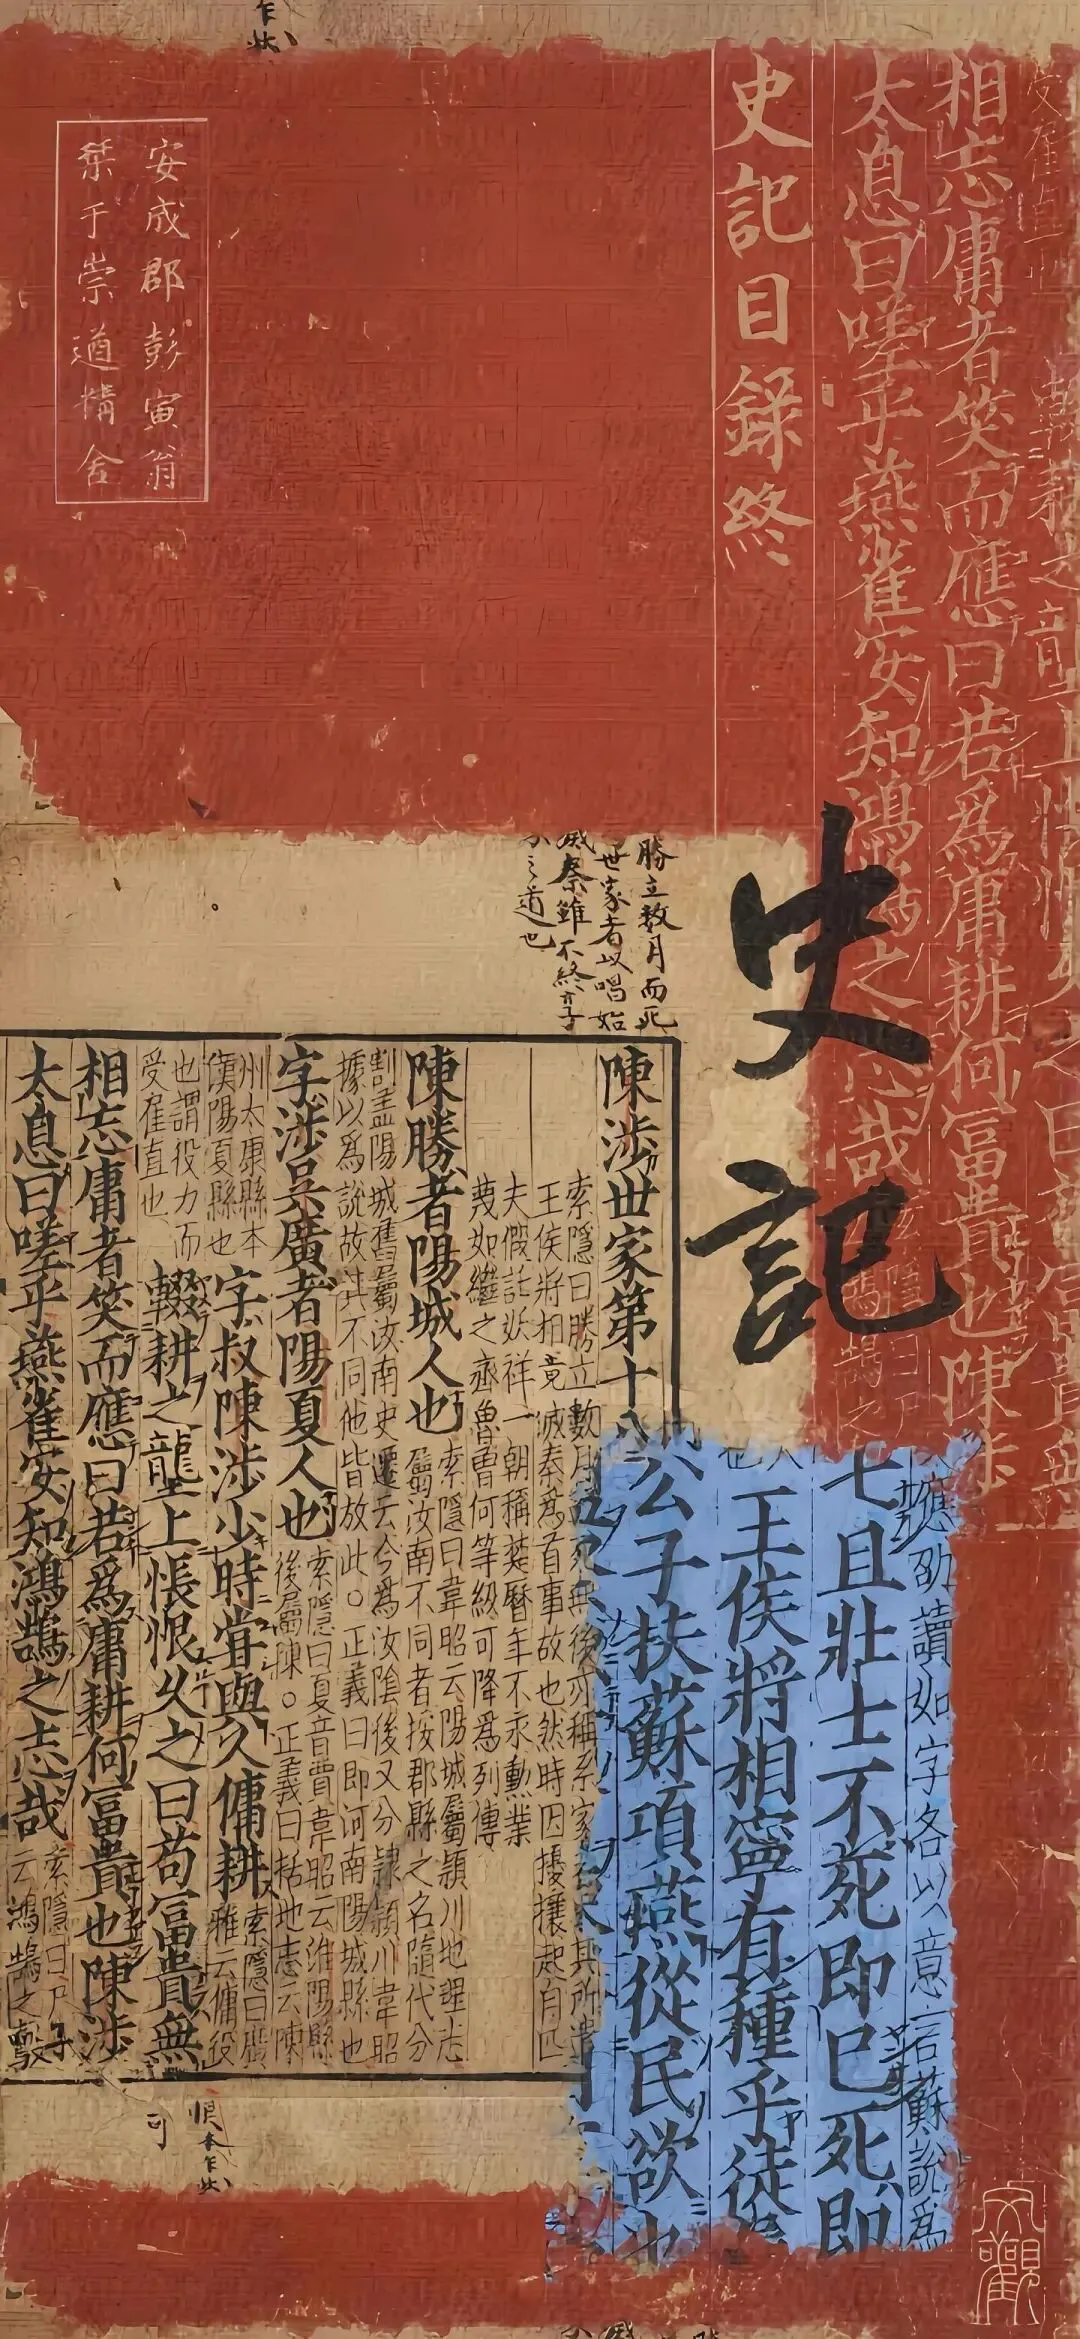 相忘庸者笑而應曰若爲庸耕何冨貴也陳涉
太息曰嗟乎燕雀安知鴻鵠之志哉
史記目録終
安成郡彭寅翁
栞于崇道精舎
史記
勝立数月而死
世家者以唱始
秦雖不終享
之道也
陳涉世家第十八
索隠曰勝立數月
王侯將相竟滅秦爲首事故也然時因擾攘起自匹
夫假託妖祥一朝稱楚曆年不永勳業
蔑如繼之齊魯曾何等級可降爲列傳
陳勝者陽城人也
索隠曰韋昭云陽城屬潁川地理志
屬汝南不同者按郡縣之名隨代分
割盖陽城舊屬汝南史遷云今爲汝隂後又分隷潁川韋昭
據以爲說故其不同他皆放此○正義曰即河南陽城縣也
字涉吴廣者陽夏人也
索隠曰夏音賈韋昭云淮陽縣
後屬陳○正義曰括地志云陳
州太康縣本
漢陽夏縣也
字叔陳涉少時甞與人傭耕
索隠曰廣
雅云傭役
也謂役力而
受雇直也
輟耕之壟上悵恨久之曰苟冨貴無
相忘庸者笑而應曰若爲庸耕何冨貴也陳涉
太息曰嗟乎燕雀安知鴻鵠之志哉
索隠曰尸子
云鴻鵠之鷇
應劭讀如字各以意言蘇說爲
七且壯士不死即已已死即
王侯將相寧有種乎徒
公子扶蘇項燕從民欲也
恨本乍此